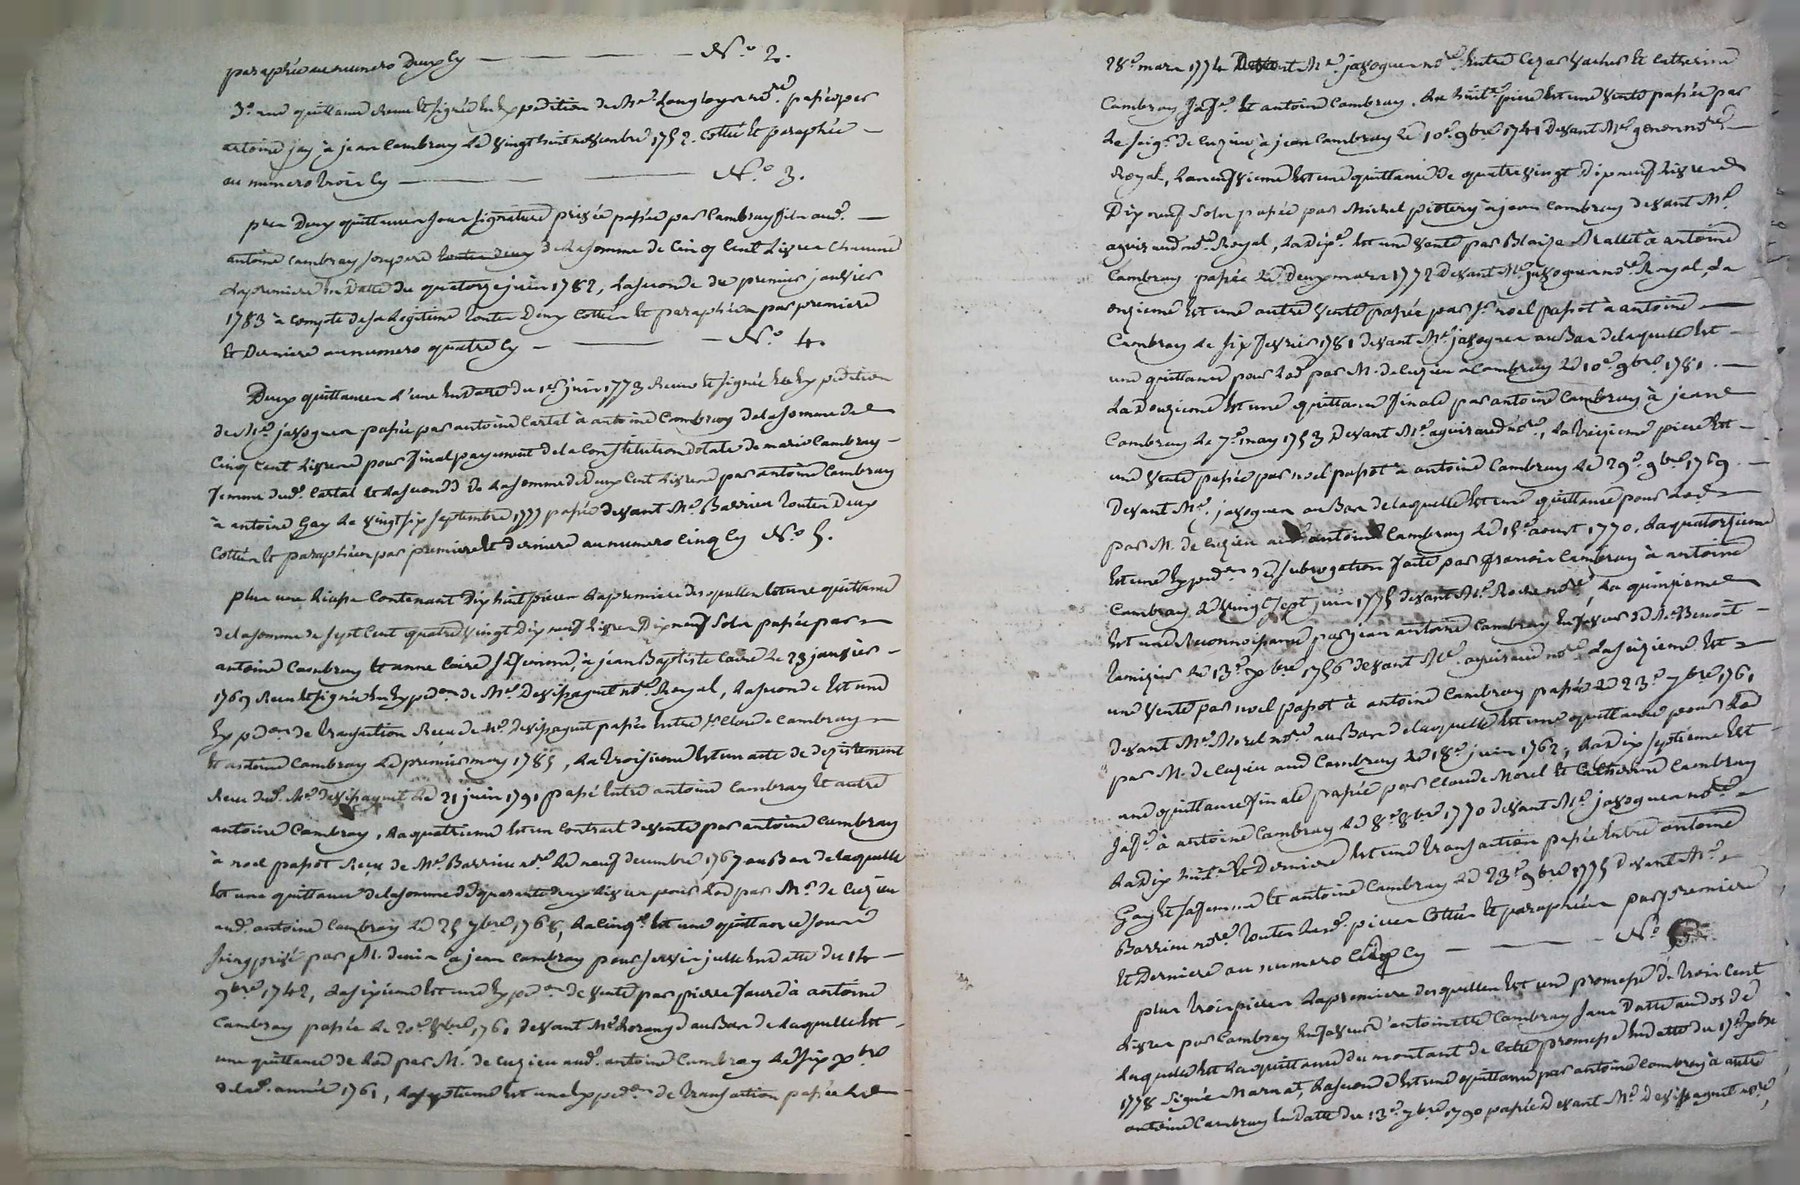 paraphée au numero Deux cy — N.º 2.
3.º une quittance Reçue et signée En Expedition de M.e Longloyer n.re passée par
antoine jay à jean Cambray Le vingt huit novembre 1752. Cotté et paraphée —
au numero trois cy — N.º 3.
plus Deux quittances sous signature privée passée par Cambray fils aud.t —
antoine Cambray son pere de la somme de Cinq Cent Livres Chacune
La premiere En Datte du quatorze juin 1782, La seconde du premier janvier
1783 à Compte de sa Legitime toutes Deux Cottées et paraphées par premiere
Et Derniere au numero quatre cy — N.º 4.
Deux quittances L'une En Datte du 1.er juin 1773 Reçue et signée En Expedition
de M.e javogues passée par antoine Cartal à antoine Cambray de la somme de
Cinq Cent Livres pour final payement de la Constitution dotale de marie Cambray
femme dud.t Cartal et La seconde de La somme de Deux Cent Livres par antoine Cambray
à antoine Gay Le vingt six septembre 1777 passée devant M.e Barrieu toutes Deux
Cottées et paraphées par premiere et derniere au numero Cinq cy N.º 5.
plus une Liasse Contenant Dix huit pieces La premiere desquelles est une quittance
de la somme de sept Cent quatre vingt Dix neuf Livres Dix neuf Sols passée par
antoine Cambray et anne Caire sa femme, à jean Baptiste Caire Le 28 janvier —
1769 Reçue et signée En Exped.on de M.e Devissaguet n.re Royal, La seconde Est une
Exped.on de transaction Reçue de M.e devissaguet passée Entre Claude Cambray
et antoine Cambray Le premier may 1785, La troisieme Est un acte de dezistement
Reçu dud. M.e devissaguet Le 21 juin 1791 passé Entre antoine Cambray Et autre
antoine Cambray, La quatrieme Est un Contract de vente par antoine Cambray
à noel papot Reçu de M.e Barrieu n.re Le neuf decembre 1767 au Bas de laquelle
Est une quittance de la somme de quarante deux Livres pour Lod par M.r de Cuzieu
aud. antoine Cambray Le 25 7bre 1768, La cinq.e Est une quittance sous
seing privé par M. denis à jean Cambray pour En datte du 14 —
9bre 1742, La sixieme Est une Exped.on de vente par pierre faure à antoine
Cambray passée Le 20.e 1761 devant M.e au Bas de Laquelle Est —
une quittance de Lod par M.r de Cuzieu aud. antoine Cambray Le six Xbre
de lad. année 1761, La septieme Est une Exped.on de transaction passée Le
28.e mars 1774 Devant M.e javogues n.re Entre Cezar vacher Et Catherine
Cambray sa f.e Et antoine Cambray. La huit.e piece Est une vente passée par
Le seig.r de Cuzieu à jean Cambray Le 10.e 9bre 1741 Devant M.e n.re —
Royal, La neuvieme Est une quittance de quatre vingt Dix neuf Livres
Dix neuf Sols passée par Michel à jean Cambray devant M.e
aguiraud n.re Royal, La dix.e Est une vente par Blaize à antoine
Cambray passée Le Deux mars 1772 Devant M.e javogues n.re Royal, La
onzieme Est une autre vente passée par S.r noel papot à antoine —
Cambray Le six fevrier 1781 devant M.e javogues au Bas de laquelle Est —
une quittance pour Lod par M. de Cuzieu à Cambray Le 10.e 9bre 1781. —
La Douzieme Est une quittance finale par antoine Cambray à jean
Cambray Le 7.e may 1753 Devant M.e aguiraud n.re, La treizieme piece Est —
une vente passée par noel papot à antoine Cambray Le 29.e 9bre 1769 —
Devant M.e javogues au Bas de laquelle Est une quittance pour Lod
par M. de Cuzieu aud. antoine Cambray Le 15.e aoust 1770. La quatorzieme
Est une Exped.on de subrogation faite par françois Cambray à antoine
Cambray Le vingt sept juin 1775 devant M.e Roche n.re, La quinzieme
Est une Reconnoissance par jean antoine Cambray En faveur de Benoit —
Le 13.e Xbre 1756 devant M.e aguiraud n.re La seizieme Est
une vente par noel papot à antoine Cambray passée Le 23.e 7bre 1761
devant M.e Morel n.re au Bas de laquelle Est une quittance pour Lod
par M. de Cuzieu aud Cambray Le 18.e juin 1762, La Dix septieme Est —
une quittance finale passée par Claude Morel Et Catherine Cambray
sa f.e à antoine Cambray Le 8.e 8bre 1770 devant M.e javogues n.re
La Dix huit.e Et Derniere Est une transaction passée Entre antoine
Gay Et sa femme Et antoine Cambray Le 23.e 9bre 1775 devant M.e
Barrieu n.re toutes Lesd. pieces Cottées Et paraphées par premiere
Et Derniere au numero cy — N.º
plus trois pieces La premiere desquelles Est une promesse de trois Cent
Livres par Cambray En faveur d'antoinette Cambray sans Datte au dos de
Laquelle Est La quittance du montant de Cette promesse En datte du 17.e Xbre
1778 signée Marnat, La seconde Est une quittance par antoine Cambray à autre
antoine Cambray En Datte du 13.e 7bre 1790 passée Devant M.e Devissaguet n.re,